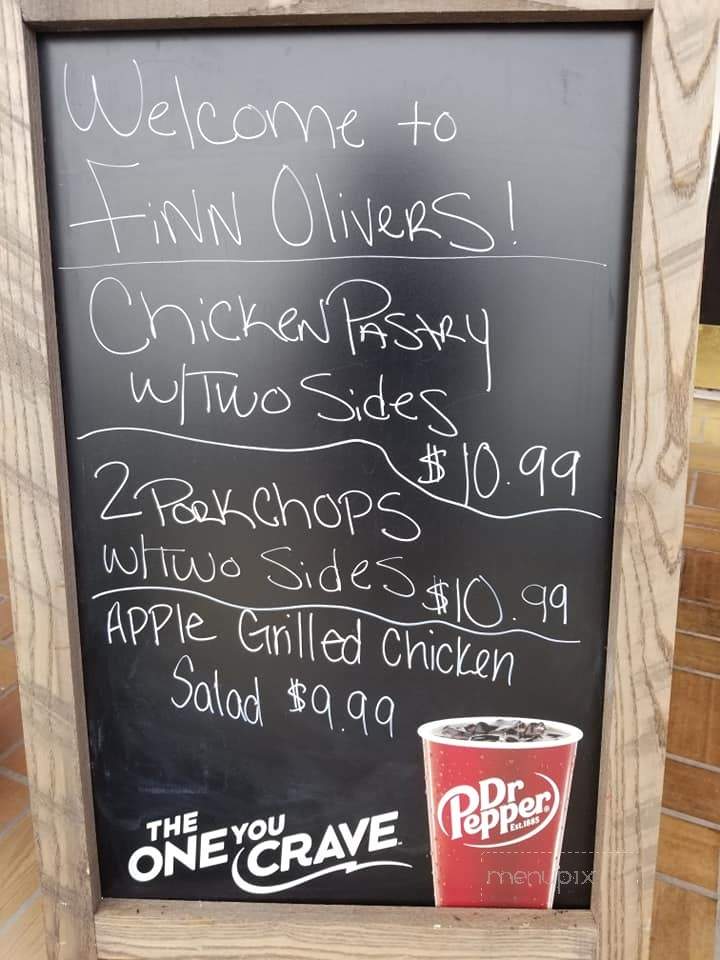 Welcome to
Finn Olivers!
Chicken Pastry
w/Two Sides
$10.99
2 Pork Chops
w/Two Sides $10.99
Apple Grilled Chicken
Salad $9.99
THE
ONE YOU
CRAVE™
Dr
Pepper®
Est.1885
menupix